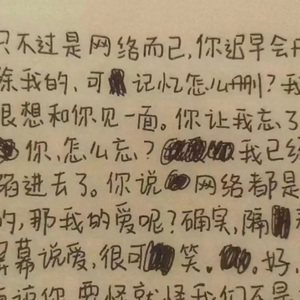 只不过是网络而已,你迟早会
除我的,可记忆怎么删?我
很想和你见一面。你让我忘了
你,怎么忘?我已经
陷进去了。你说网络都是
的,那我的爱呢?确实,隔
屏幕说爱,很可笑。好,
该你,要怪就怪我们不是